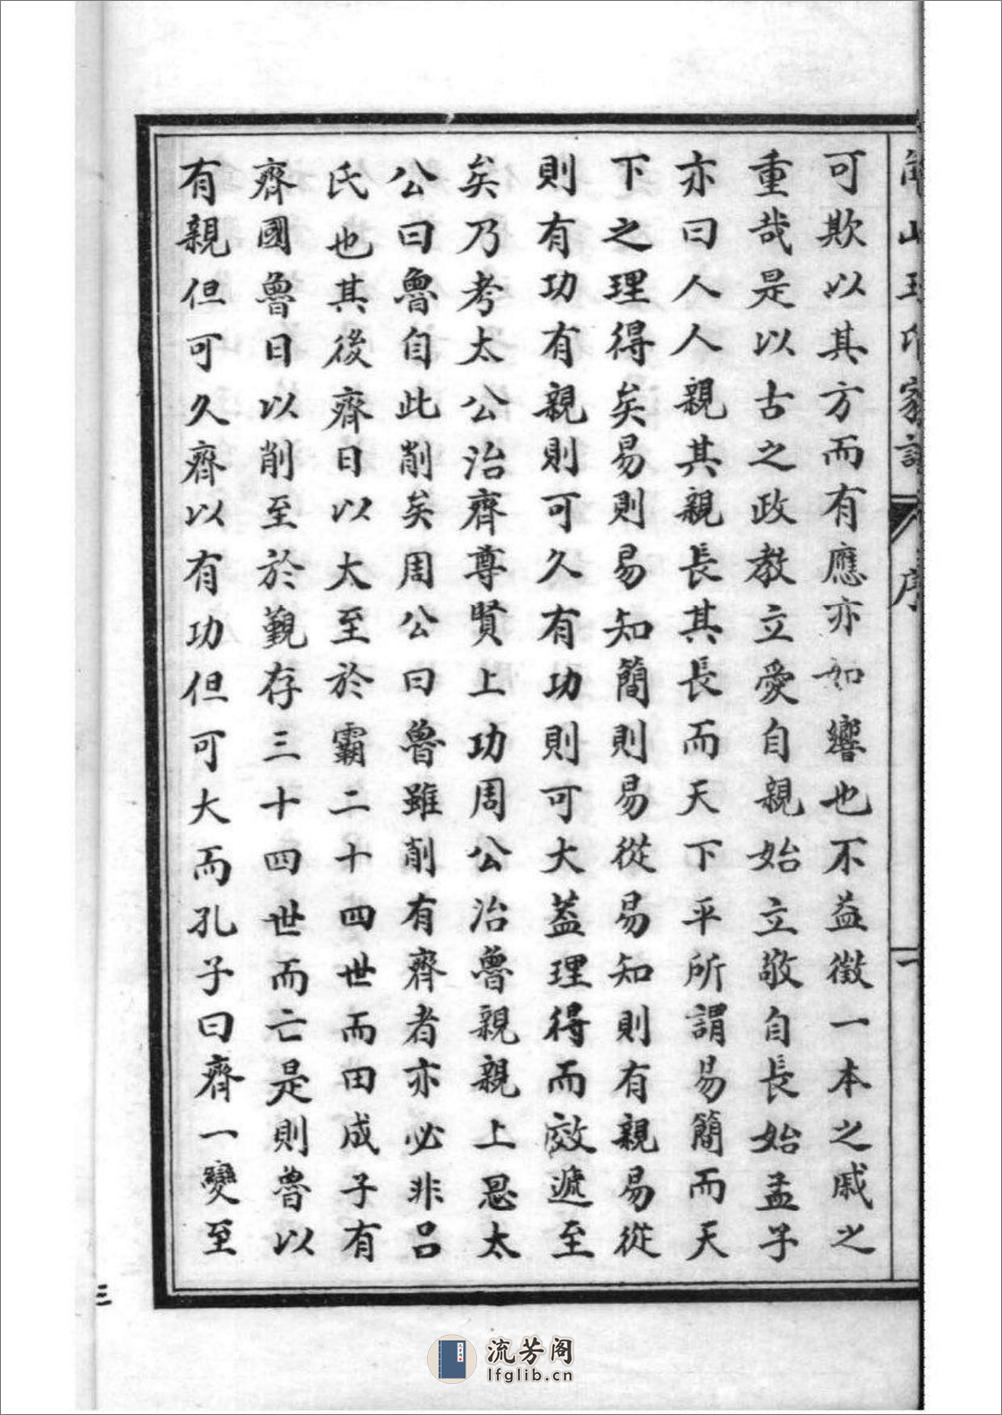 可欺以其方而有應亦如響也不益徵一本之戚之
重哉是以古之政教立愛自親始立敬自長始孟子
亦曰人人親其親長其長而天下平所謂易簡而天
下之理得矣易則易知簡則易從易知則有親易從
則有功有親則可久有功則可大蓋理得而效遞至
矣乃考太公治齊尊賢上功周公治魯親親上恩太
公曰魯自此削矣周公曰魯雖削有齊者亦必非呂
氏也其後齊日以大至於霸二十四世而田成子有
齊國魯日以削至於覲存三十四世而亡是則魯以
有親但可久齊以有功但可大而孔子曰齊一變至
序
三
流芳阁
lfglib.cn